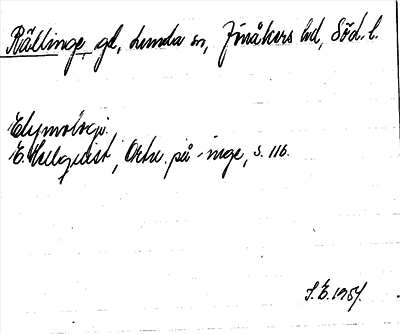 Rällinge, gd, Lunda sn, Jönåkers hd, Söd. l.
Etymologi.
E. Hellquist, Ortn. på -inge, s. 116.
S.E. 1954.